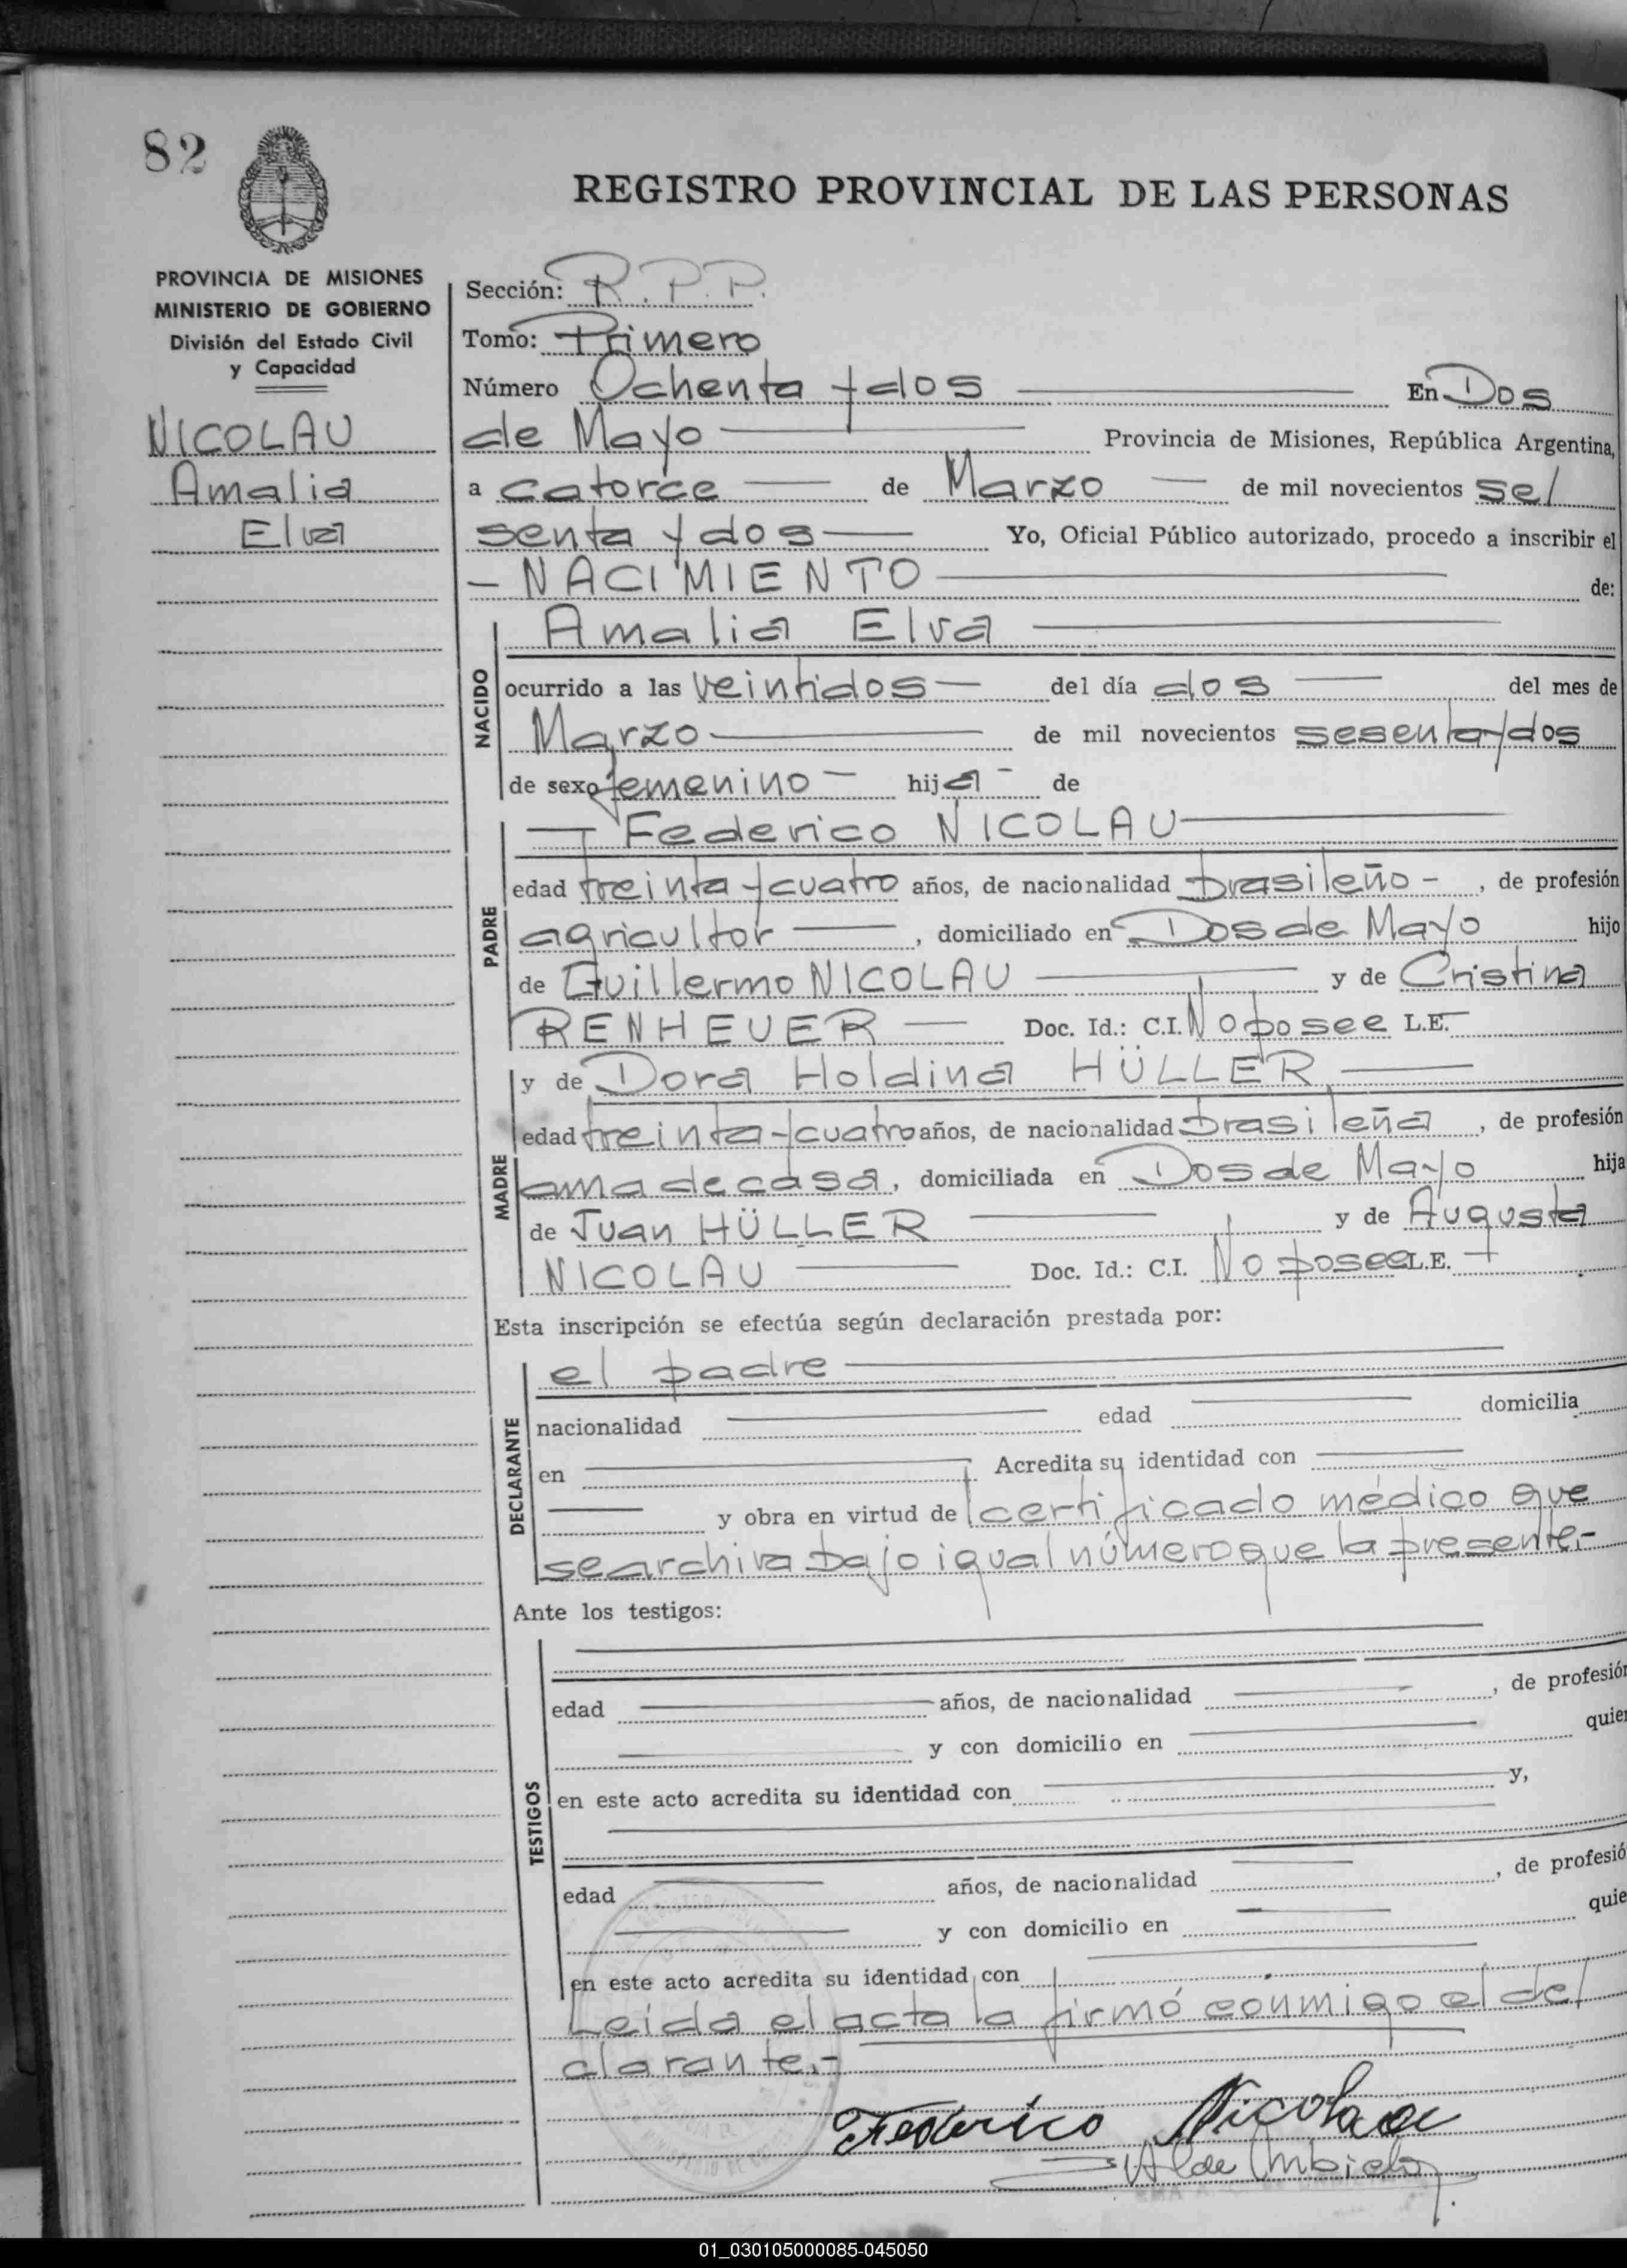 82
REGISTRO PROVINCIAL DE LAS PERSONAS
PROVINCIA DE MISIONES
MINISTERIO DE GOBIERNO
División del Estado Civil
y Capacidad
NICOLAU
Amalia
Elva
Sección: R.P.P.
Tomo: Primero
Número Ochenta y dos En Dos
de Mayo Provincia de Misiones, República Argentina,
a catorce de Marzo de mil novecientos se/
senta y dos Yo, Oficial Público autorizado, procedo a inscribir el
- NACIMIENTO de:
NACIDO
Amalia Elva
ocurrido a las veintidos del día dos del mes de
Marzo de mil novecientos sesenta y dos
de sexo femenino hija de
PADRE
Federico NICOLAU
edad treinta y cuatro años, de nacionalidad brasileño - , de profesión
agricultor , domiciliado en Dos de Mayo hijo
de Guillermo NICOLAU y de Cristina
RENHEUER Doc. Id.: C.I. No posee L.E.
MADRE
y de Dora Holdina HÜLLER,
edad treinta y cuatro años, de nacionalidad brasileña , de profesión
ama de casa , domiciliada en Dos de Mayo hija
de Juan HÜLLER y de Augusta
NICOLAU Doc. Id.: C.I. No posee L.E.
Esta inscripción se efectúa según declaración prestada por:
DECLARANTE
el padre
nacionalidad edad domicilia
en Acredita su identidad con
y obra en virtud de certificado médico que
se archiva bajo igual número que la presente.-
Ante los testigos:
TESTIGOS
edad años, de nacionalidad , de profesión
y con domicilio en quier
en este acto acredita su identidad con y,
edad años, de nacionalidad , de profesió
y con domicilio en quie
en este acto acredita su identidad con
Leída el acta la firmó conmigo el de/
clarante.-
Federico Nicolau
01_030105000085-045050